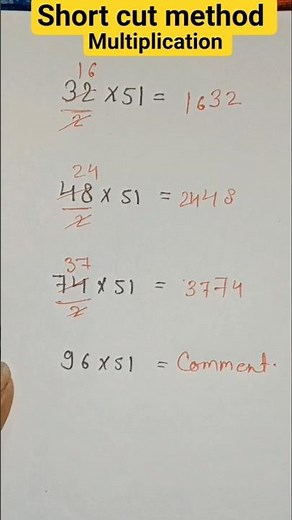 Short cut method
Multiplication
16
32 × 51 = 1632
2
24
48 × 51 = 2448
2
37
74 × 51 = 3774
2
96 × 51 = Comment.